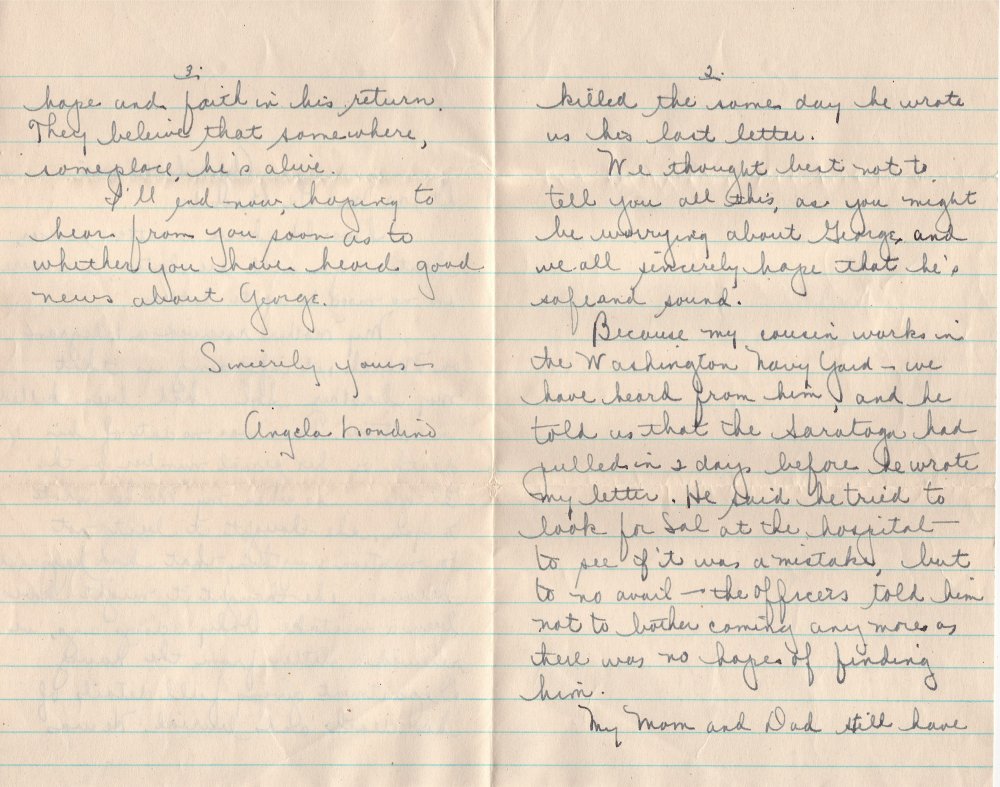 2.
killed the same day he wrote
us his last letter.
We thought best not to
tell you all this, as you might
be worrying about George, and
we all sincerely hope that he's
safe and sound.
Because my cousin works in
the Washington Navy Yard – we
have heard from him, and he
told us that the Saratoga had
pulled in 2 days before he wrote
my letter. He said he tried to
look for Sal at the hospital –
to see if it was a mistake, but
to no avail – the officers told him
not to bother coming any more as
there was no hopes of finding
him.
My Mom and Dad still have
3.
hope and faith in his return.
They beleive that somewhere,
someplace, he's alive.
I'll end now, hoping to
hear from you soon as to
whether you have heard good
news about George.
Sincerely yours –
Angela